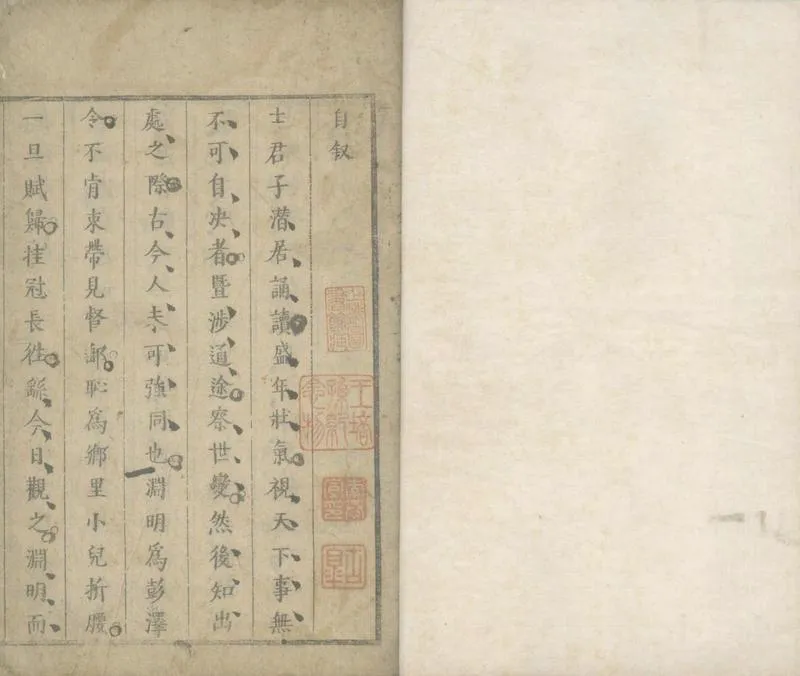 自叙
士君子潜居誦讀盛年壯氣視天下事無
不可自决者暨涉道途察世變然後知出
處之際古今人未可強同也淵明爲彭澤
令不肯束帶見督郵恥爲鄉里小兒折腰
一旦賦歸挂冠長徃繇今日觀之淵明而